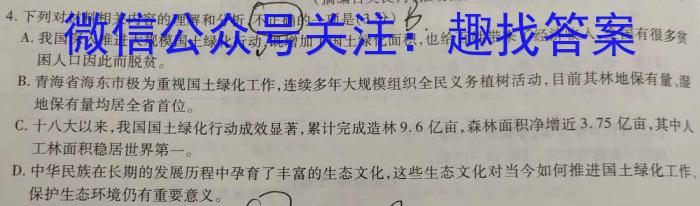 4. 下列对材料相关内容的理解和分析,不正确的一项是(3分)( B
微信公众号关注:趣找答案
A. 我国 推进大规模国土绿化行动, 增加了国土绿化面积,也给 带来了经济收入, 国有很多贫
困人口因此而脱贫。
B. 青海省海东市极为重视国土绿化工作,连续多年大规模组织全民义务植树活动,目前其林地保有量、湿
地保有量均居全省首位。
C. 十八大以来,我国国土绿化行动成效显著,累计完成造林9.6亿亩,森林面积净增近3.75亿亩,其中人
工林面积稳居世界第一。
D. 中华民族在长期的发展历程中孕育了丰富的生态文化,这些生态文化对当今如何推进国土绿化工作、
保护生态环境仍有重要意义。